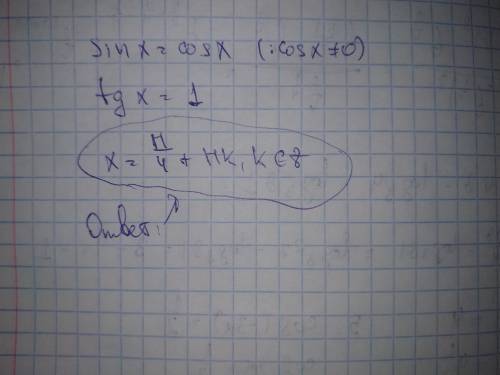 sin x = cos x (: cos x ≠ 0)
tg x = 1
x = π/4 + πk, k ∈ z
Ответ: